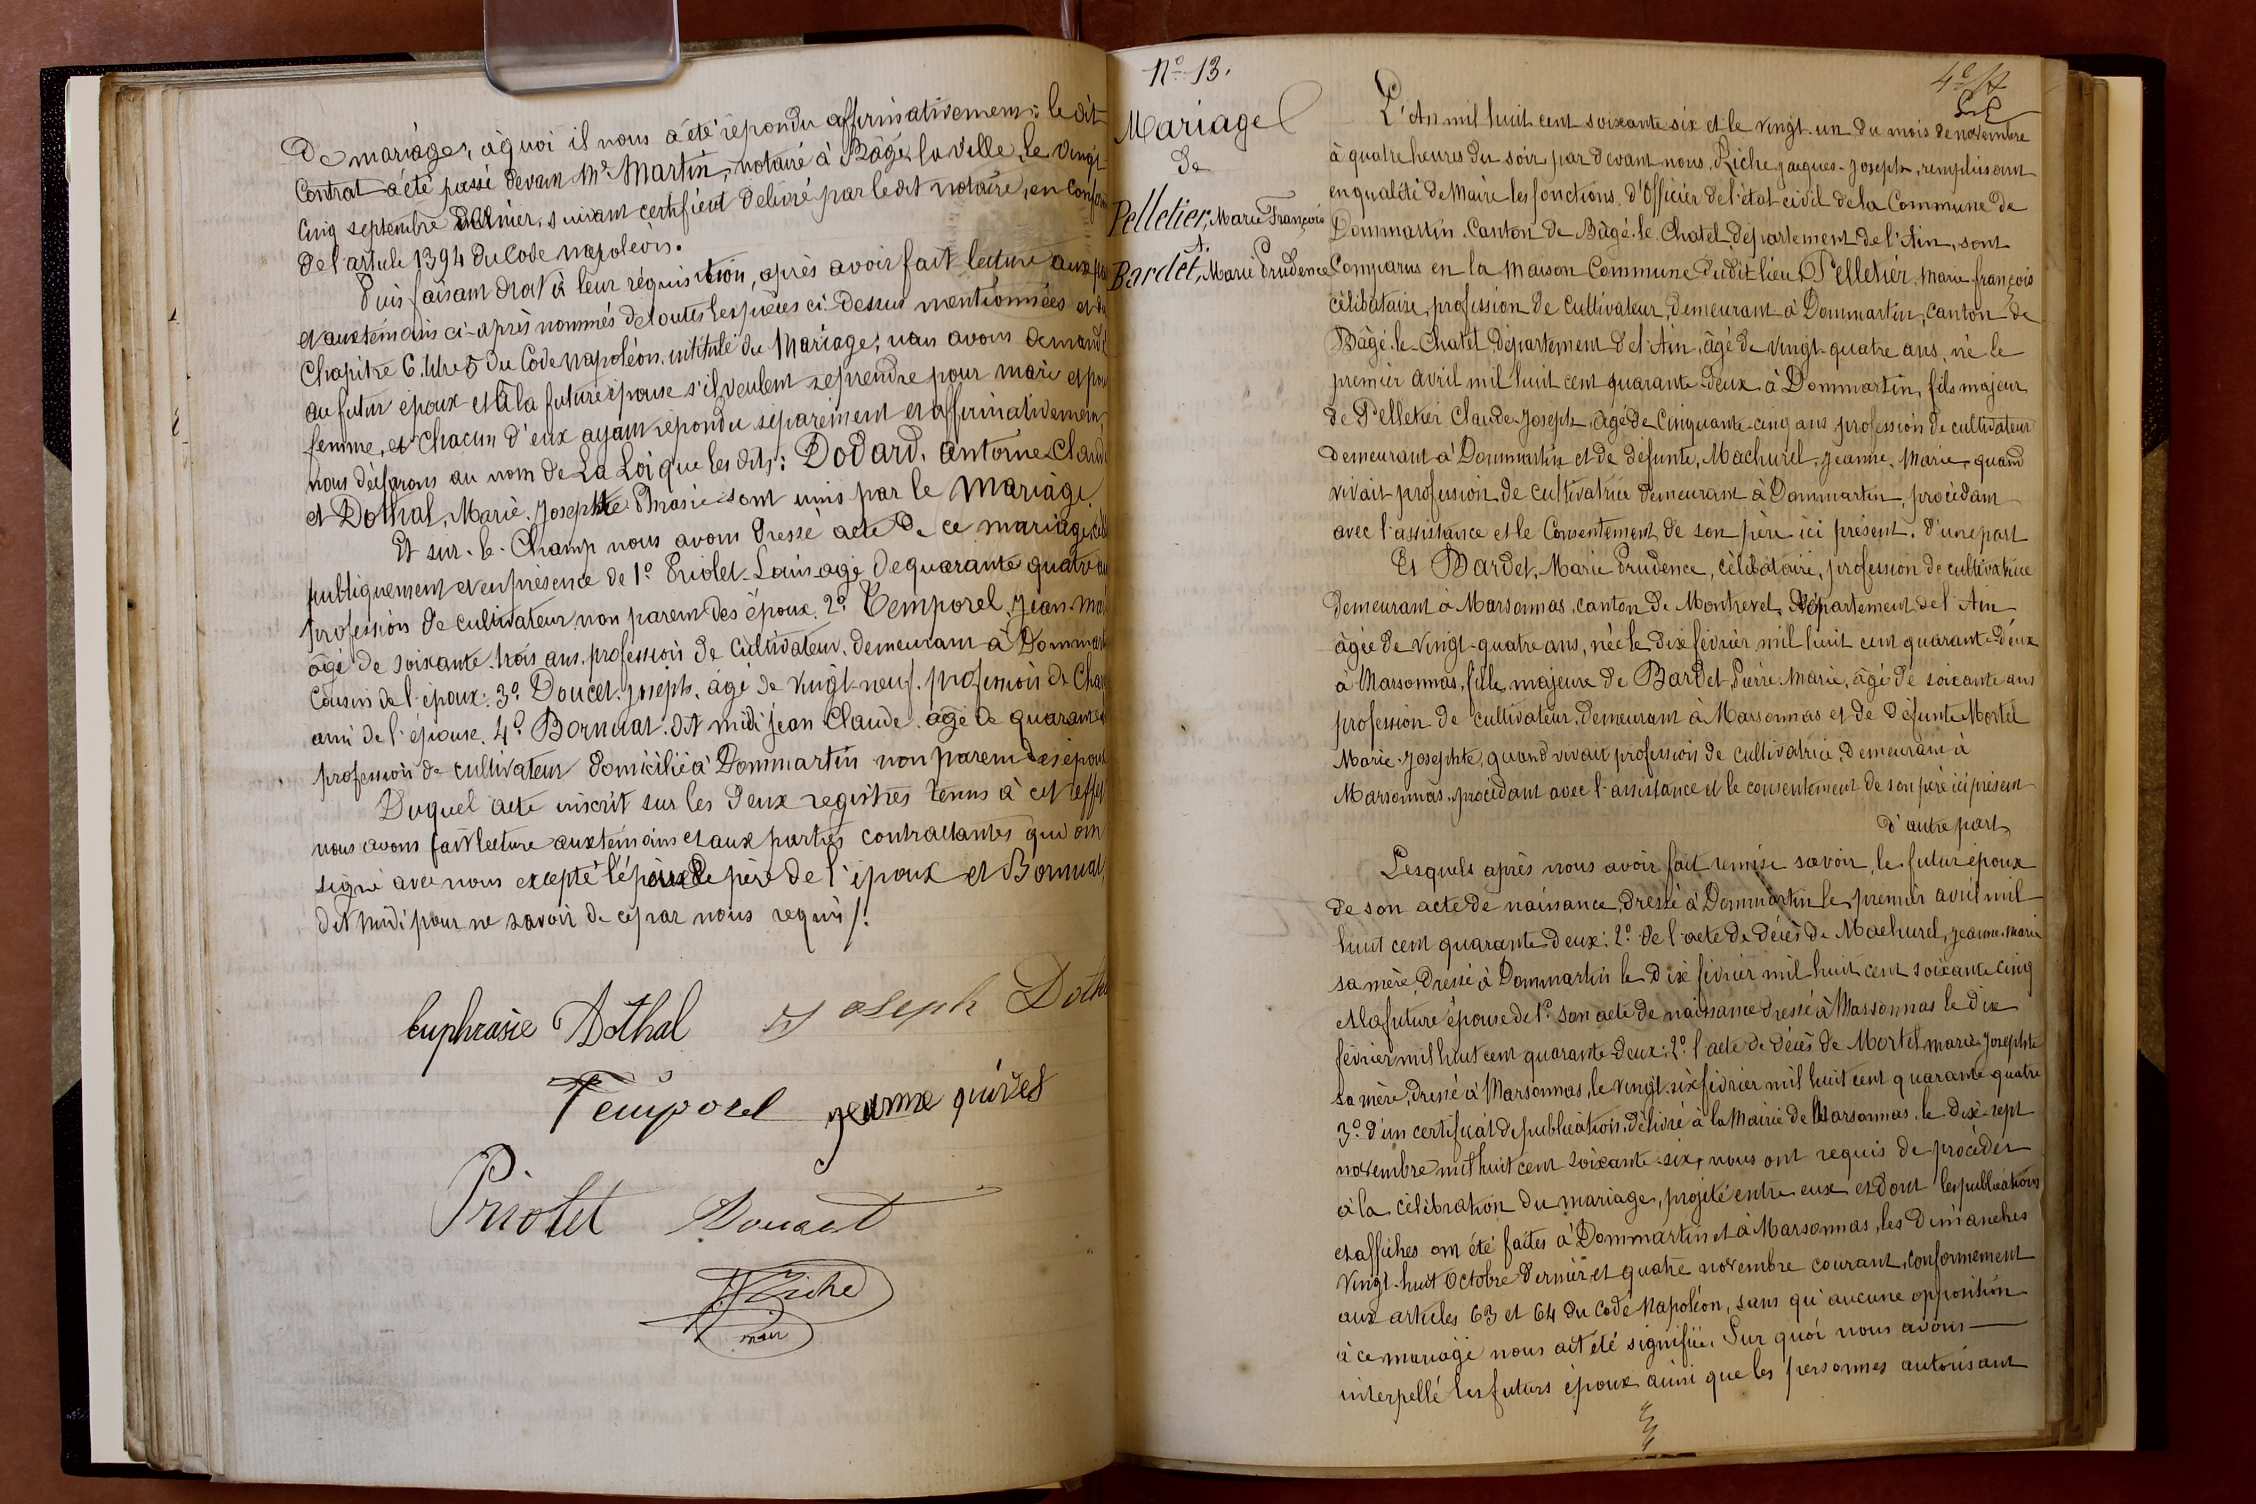 De mariage, à quoi il nous a été répondu affirmativement: le dit
Contrat a été passé devant Mr Martin, notaire à Bâgé la ville, le vingt
Cinq septembre dernier, suivant certificat delivré par le dit notaire, en
de l'article 1394 du Code napoléon.
Puis faisant droit à leur réquisition, après avoir fait lecture aux
et aux témoins ci-après nommés de toutes les pièces ci-dessus mentionnées et du
Chapitre 6. titre 5 du Code napoléon, intitulé du Mariage, nous avons demandé
au futur époux et à la future épouse s'ils veulent se prendre pour mari et pour
femme, et chacun d'eux ayant répondu séparément et affirmativement,
nous déclarons au nom de La Loi que les dits: Dodard, Antoine-Claude
et Dothal, Marie. Josephte sont unis par le mariage
Et sur-le-Champ nous avons dressé acte de ce mariage,
publiquement et en présence de 1o Priolet Louis agé de quarante quatre
profession de cultivateur, non parent des époux. 2o Temporel, Jean
agé de soixante-trois ans, profession de cultivateur, demeurant à
Cousin de l'époux: 3o Doucet, joseph, âgé de vingt-neuf. profession de
ami de l'épouse. 4o Bornuat dit midi jean Claude. âgé de
profession de cultivateur domicilié à Dommartin non parent des époux
Duquel acte inscrit sur les deux registres tenus à cet effet
nous avons fait lecture aux témoins et aux parties contractantes qui ont
signé avec nous excepté le père de l'époux et Bornuat,
dit midi pour ne savoir de ce par nous requis /.
euphrasie Dothal Joseph
Temporel jeanne
Priolet Doucet
Riche
maire
No 13.
Mariage
de
Pelletier, Marie François
et
Bardet, Marie Prudence
L'An mil huit cent soixante six et le vingt-un du mois de novembre
à quatre heures du soir, par devant nous, Riche Jacques-Joseph, remplissant
en qualité de Maire les fonctions d'Officier de l'état civil de la Commune de
Dommartin. Canton de Bâgé-le-Chatel département de l'Ain, sont
Comparus en la maison Commune dudit lieu, Pelletier, Marie françois
célibataire, profession de cultivateur, demeurant à Dommartin, canton de
Bâgé-le-Chatel, département de l'Ain, âgé de vingt-quatre ans, né le
premier avril mil huit cent quarante deux à Dommartin, fils majeur
de Pelletier Claude-Joseph, âgé de Cinquante-cinq ans profession de cultivateur
demeurant à Dommartin et de défunte, Machurel, Jeanne, Marie, quand
vivait profession de cultivatrice demeurant à Dommartin, procédant
avec l'assistance et le Consentement de son père ici présent. d'une part
Et Bardet, Marie Prudence, célibataire, profession de cultivatrice
demeurant à Marsonnas, canton de Montrevel, Département de l'Ain
âgée de vingt-quatre ans, née le dix février mil huit cent quarante deux
à Marsonnas, fille majeure de Bardet Pierre-Marie, âgé de soixante ans
profession de cultivateur, demeurant à Marsonnas et de Défunte Mortel
Marie-Josephte, quand vivait profession de cultivatrice, demeurant à
Marsonnas, procédant avec l'assistance et le consentement de son père ici présent
d'autre part,
Lesquels après nous avoir fait remise savoir, le futur époux
de son acte de naissance, dressé à Dommartin le premier avril mil
huit cent quarante deux: 2o de l'acte de décès de Machurel, jeanne-marie
sa mère, dressé à Dommartin le dix février mil huit cent soixante cinq
et la future épouse de 1o son acte de naissance dressé à Marsonnas le dix
février mil huit cent quarante-deux: 2o l'acte de décès de Mortel marie Josephte
sa mère, dressé à Marsonnas, le vingt-six février mil huit cent quarante-quatre
3o d'un certificat de publication, délivré à la Mairie de Marsonnas, le dix-sept
novembre mil huit cent soixante-six, nous ont requis de procéder
à la célébration du mariage, projeté entre eux et dont les publications
et affiches ont été faites à Dommartin et à Marsonnas, les dimanches
vingt-huit Octobre dernier et quatre novembre courant, conformement
aux articles 63 et 64 du Code Napoléon, sans qu'aucune opposition
à ce mariage nous ait été signifiée. Sur quoi nous avons
interpellé les futurs époux ainsi que les personnes autorisant